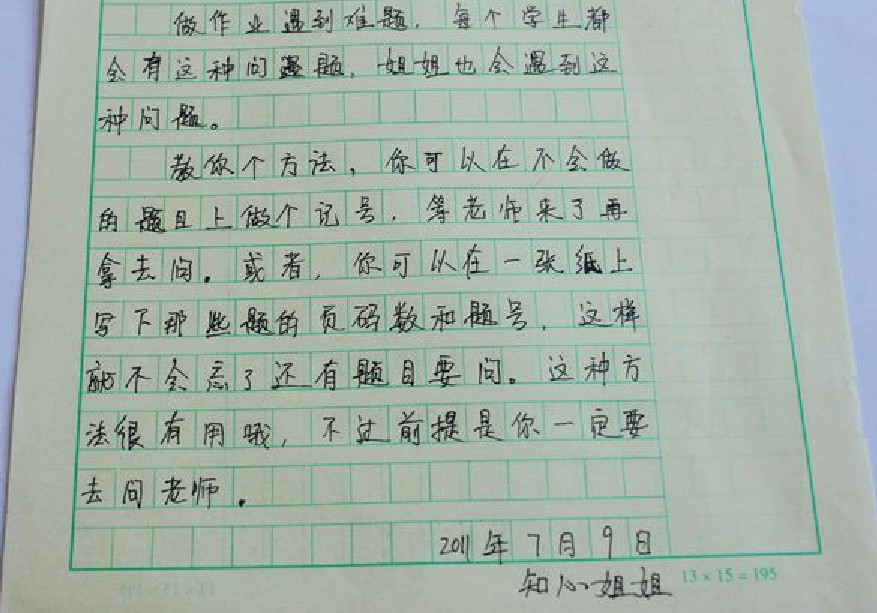 做作业遇到难题，每个学生都
会有这种问题，姐姐也会遇到这
种问题。
教你个方法，你可以在不会做
的题目上做个记号，等老师来了再
拿去问。或者，你可以在一张纸上
写下那些题的页码数和题号，这样
就不会忘了还有题目要问。这种方
法很有用哦，不过前提是你一定要
去问老师。
2011年7月9日
知心姐姐
13×15=195